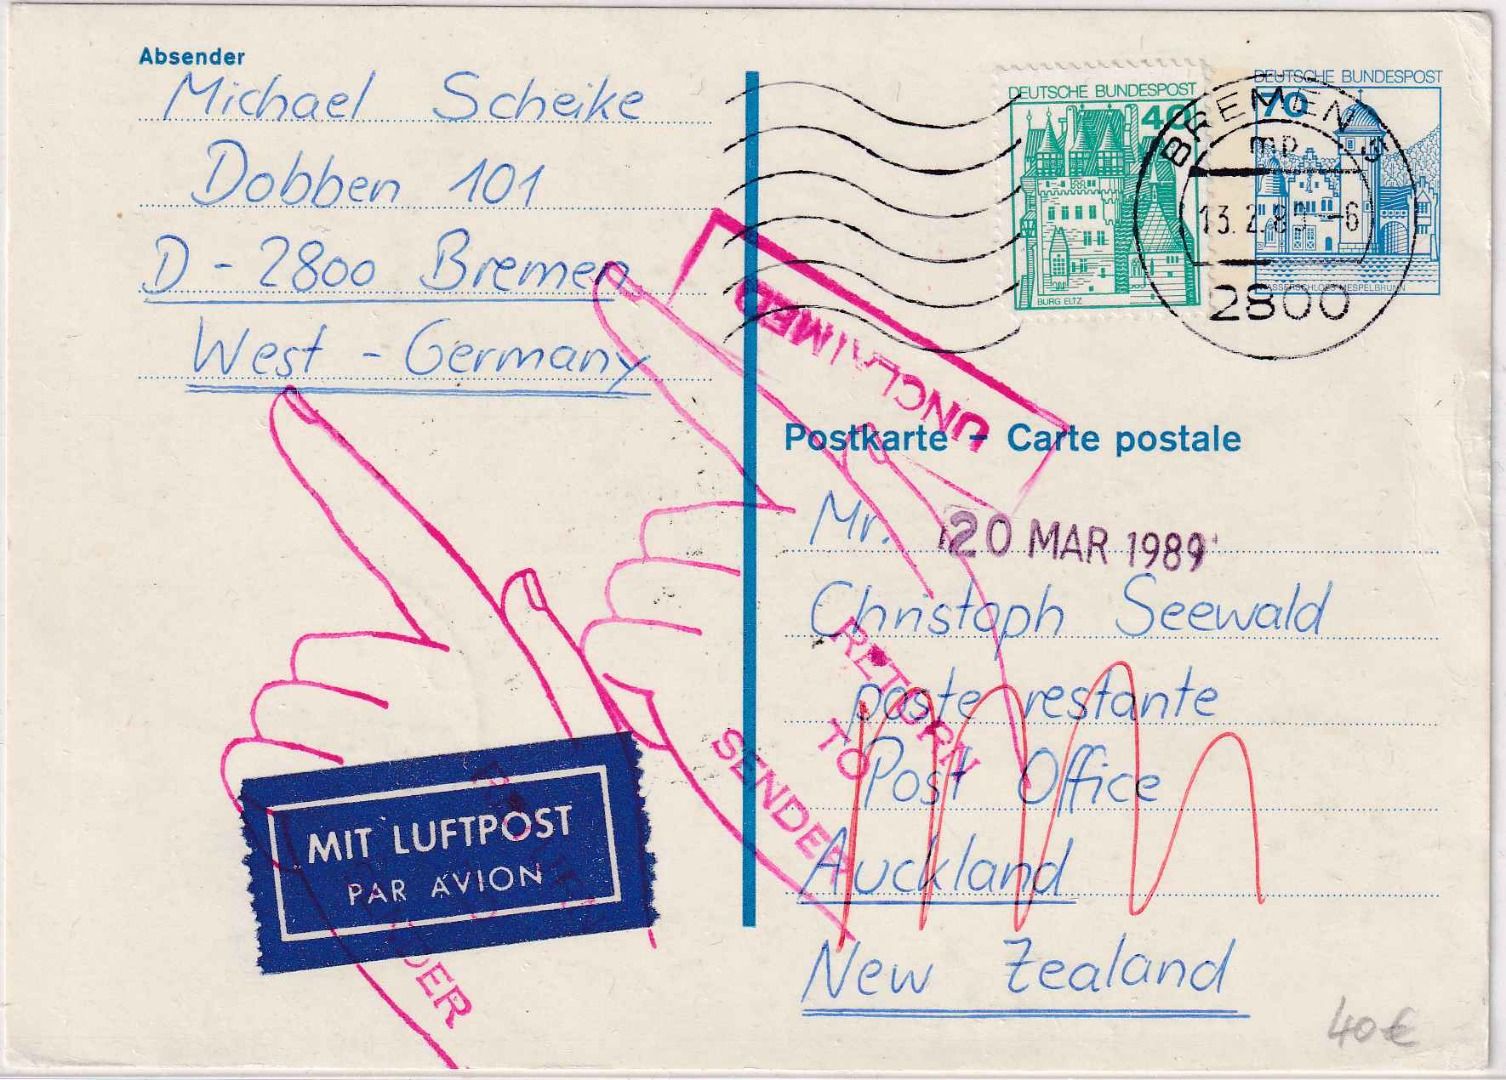 Absender
Michael Scheike
Dobben 101
D - 2800 Bremen
West - Germany
DEUTSCHE BUNDESPOST
40
BURG ELTZ
DEUTSCHE BUNDESPOST
70
WASSERSCHLOSS MESPELBRUNN
BREMEN 5
mp
13.2.89 - 6
2800
UNCLAIMED
Postkarte - Carte postale
Mr.
20 MAR 1989
Christoph Seewald
poste restante
Post Office
Auckland
New Zealand
RETURN
TO
SENDER
MIT LUFTPOST
PAR AVION
DER
40€